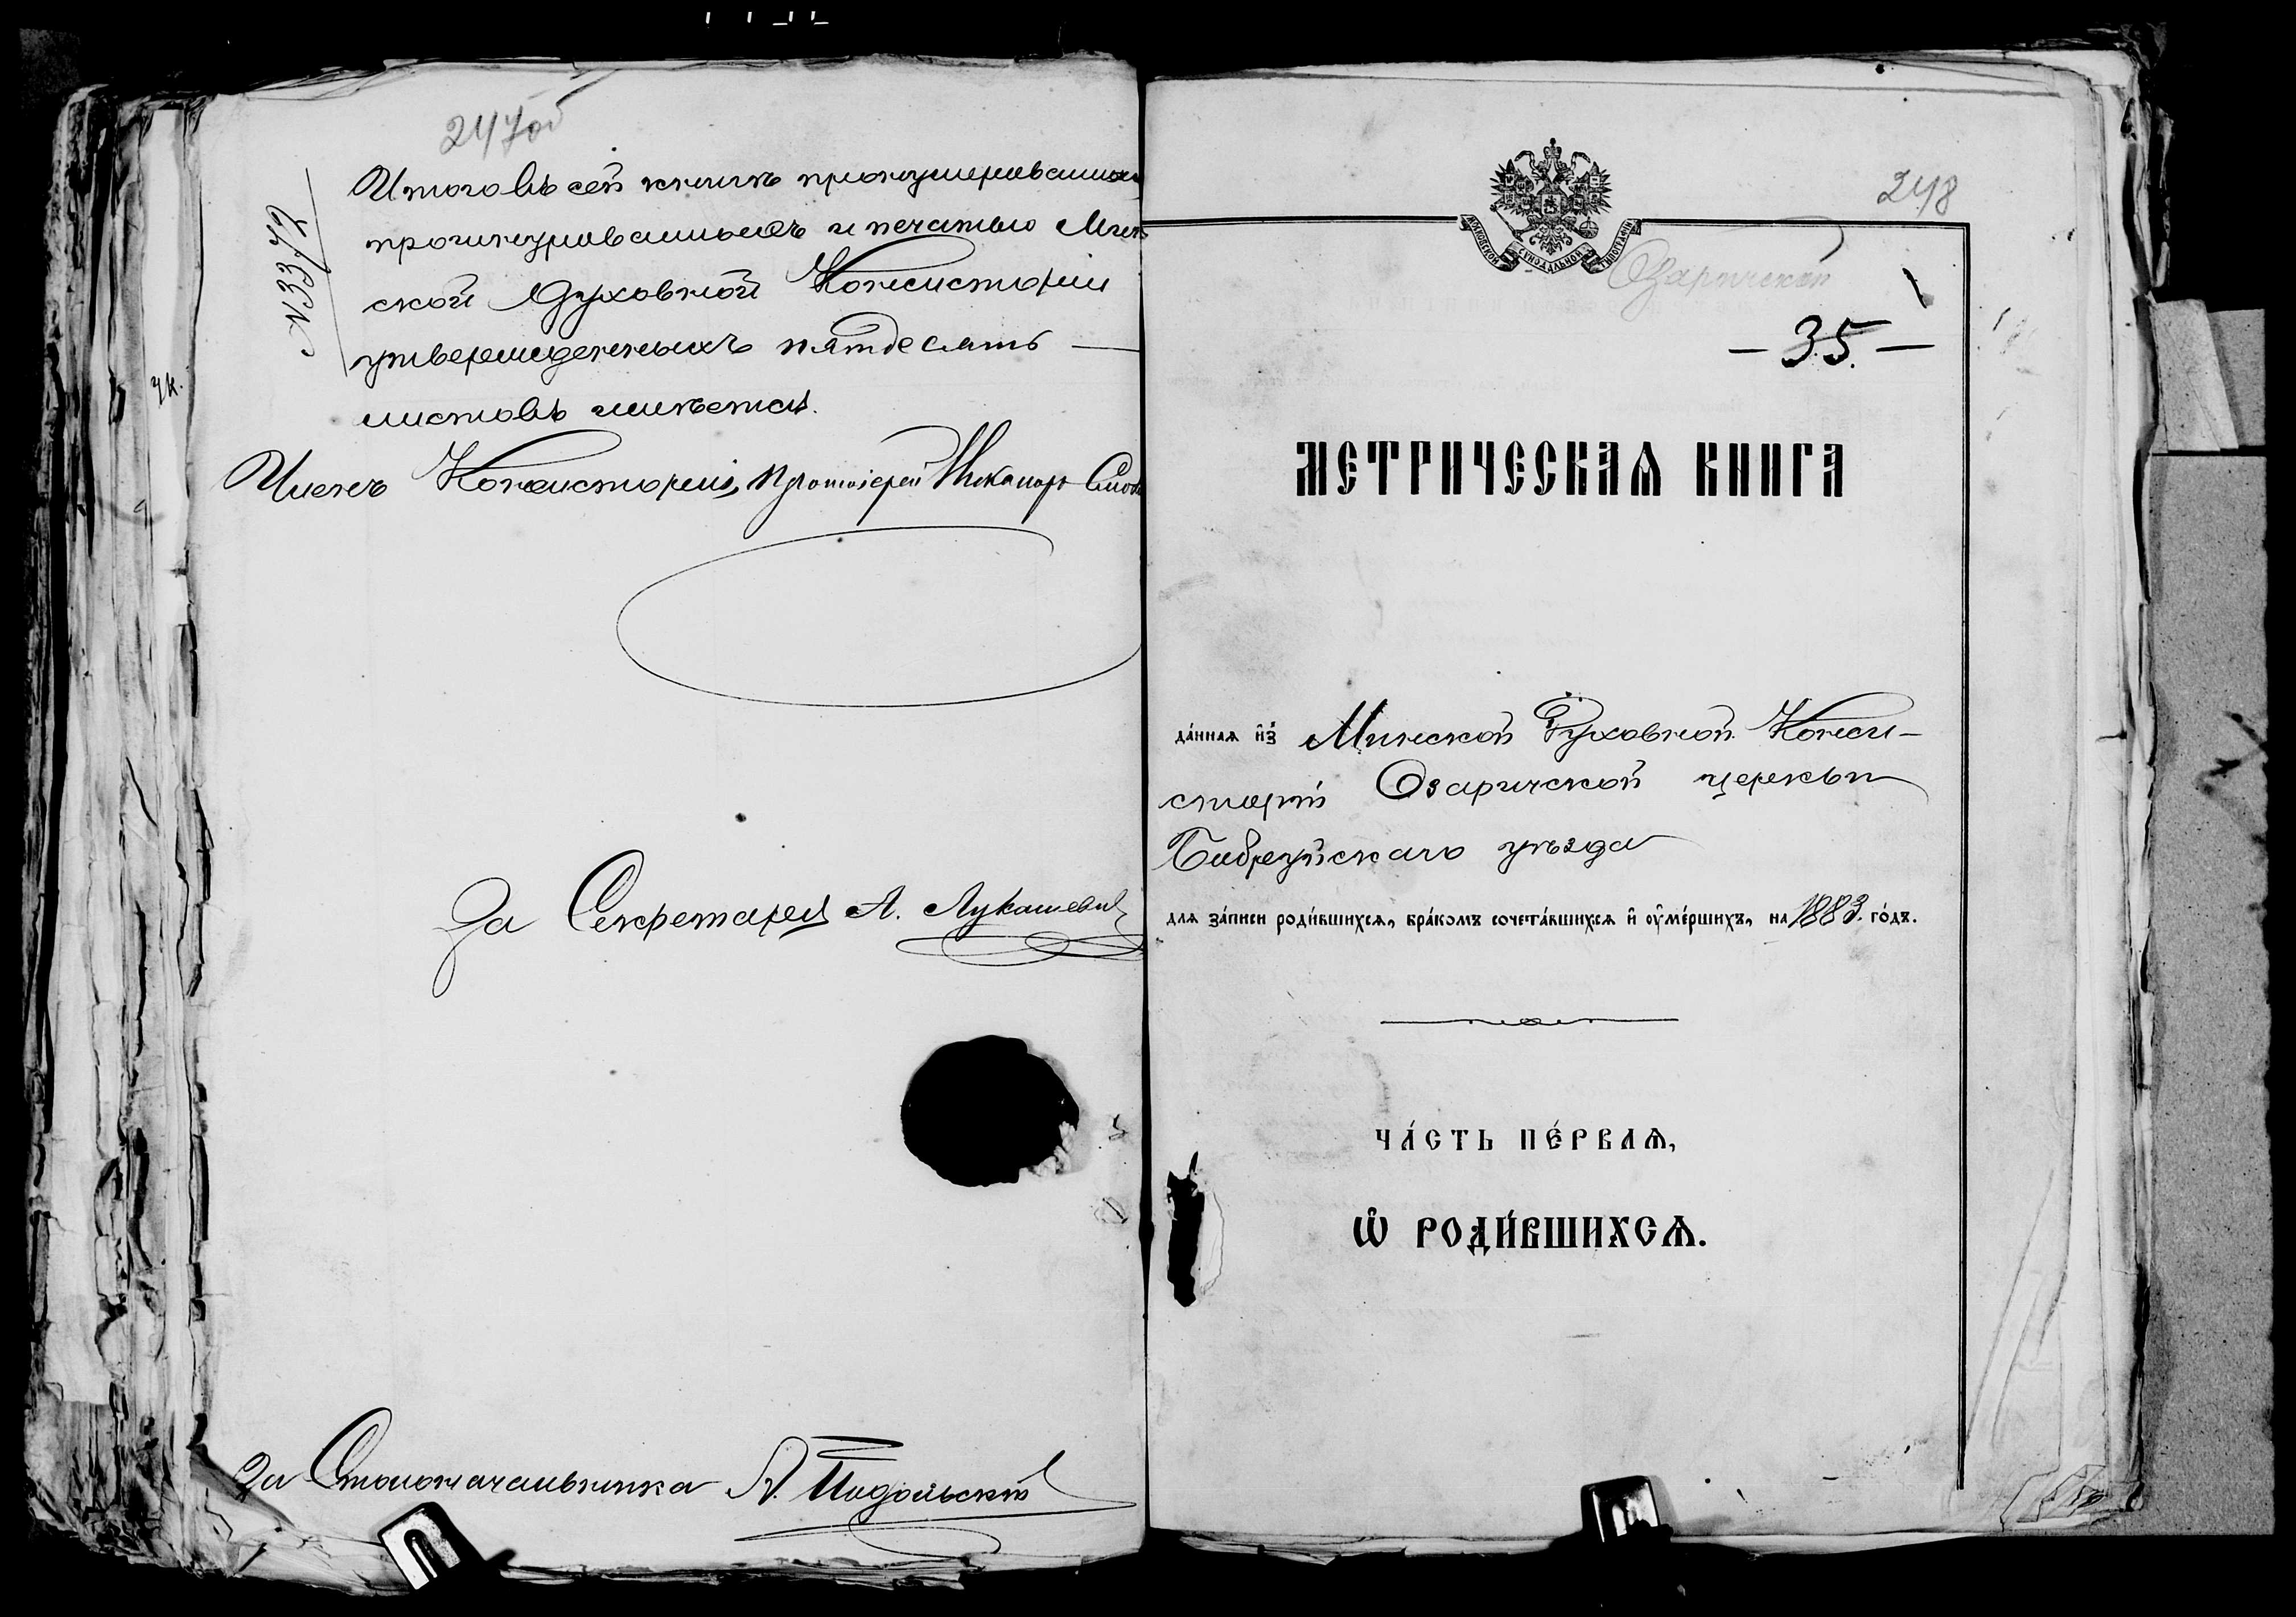 247об
N 3372
Итого въ сей книгѣ пронумерованныхъ
прошнурованныхъ и печатью Мин
ской Духовной Консисторіи
утвержденныхъ пятдесятъ —
листовъ имѣется.
Членъ Консисторіи, Протоіерей Никаноръ
За Секретаря А. Лукашевичъ
За Столоначальника А. Подольскій
248
МОСКОВСКОЙ СѴНОДАЛЬНОЙ ТИПОГРАФІИ
Озаричской
— 35. —
МЕТРИЧЕСКАѦ КНИГА
да́ннаѧ и҆з̾ Минской Духовной Конси-
сторіи Озаричской церкви
Бобруйскаго уѣзда
для за́писи роди́вшихсѧ, бра́комъ сочета́вшихсѧ и҆ ᲂу҆ме́ршихъ, на 1883. го́дъ.
ЧА́СТЬ ПЕ́РВАѦ,
Ѡ҆ РОДИ́ВШИХСѦ.